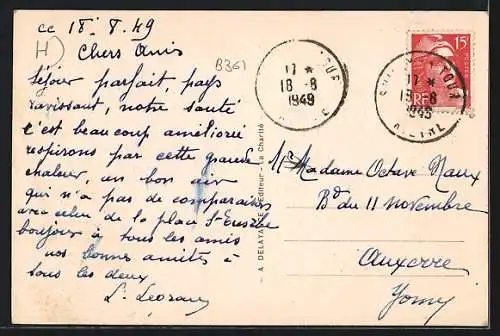 cc 18. 8. 49
H)
Chers Amis
B361
Séjour parfait, pays
ravissant, notre santé
s'est beaucoup améliorée
respirons par cette grande
chaleur un bon air
qui n'a pas de comparaison
avec celui de la place St Eusèbe
bonjour à tous les amis
nos bonnes amitiés à
tous les deux
L.
17 *
18-8
1949
15F
RF
17 *
18-8
1949
NIÈVRE
A. DELAYANCE, Editeur - La Charité
Mr Madame Octave
Bd du 11 novembre
Auxerre
Yonne